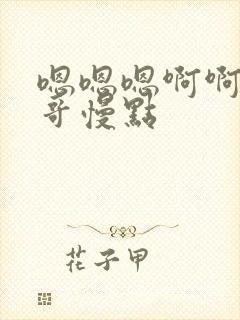 嗯嗯嗯啊啊
哥慢點
花子甲